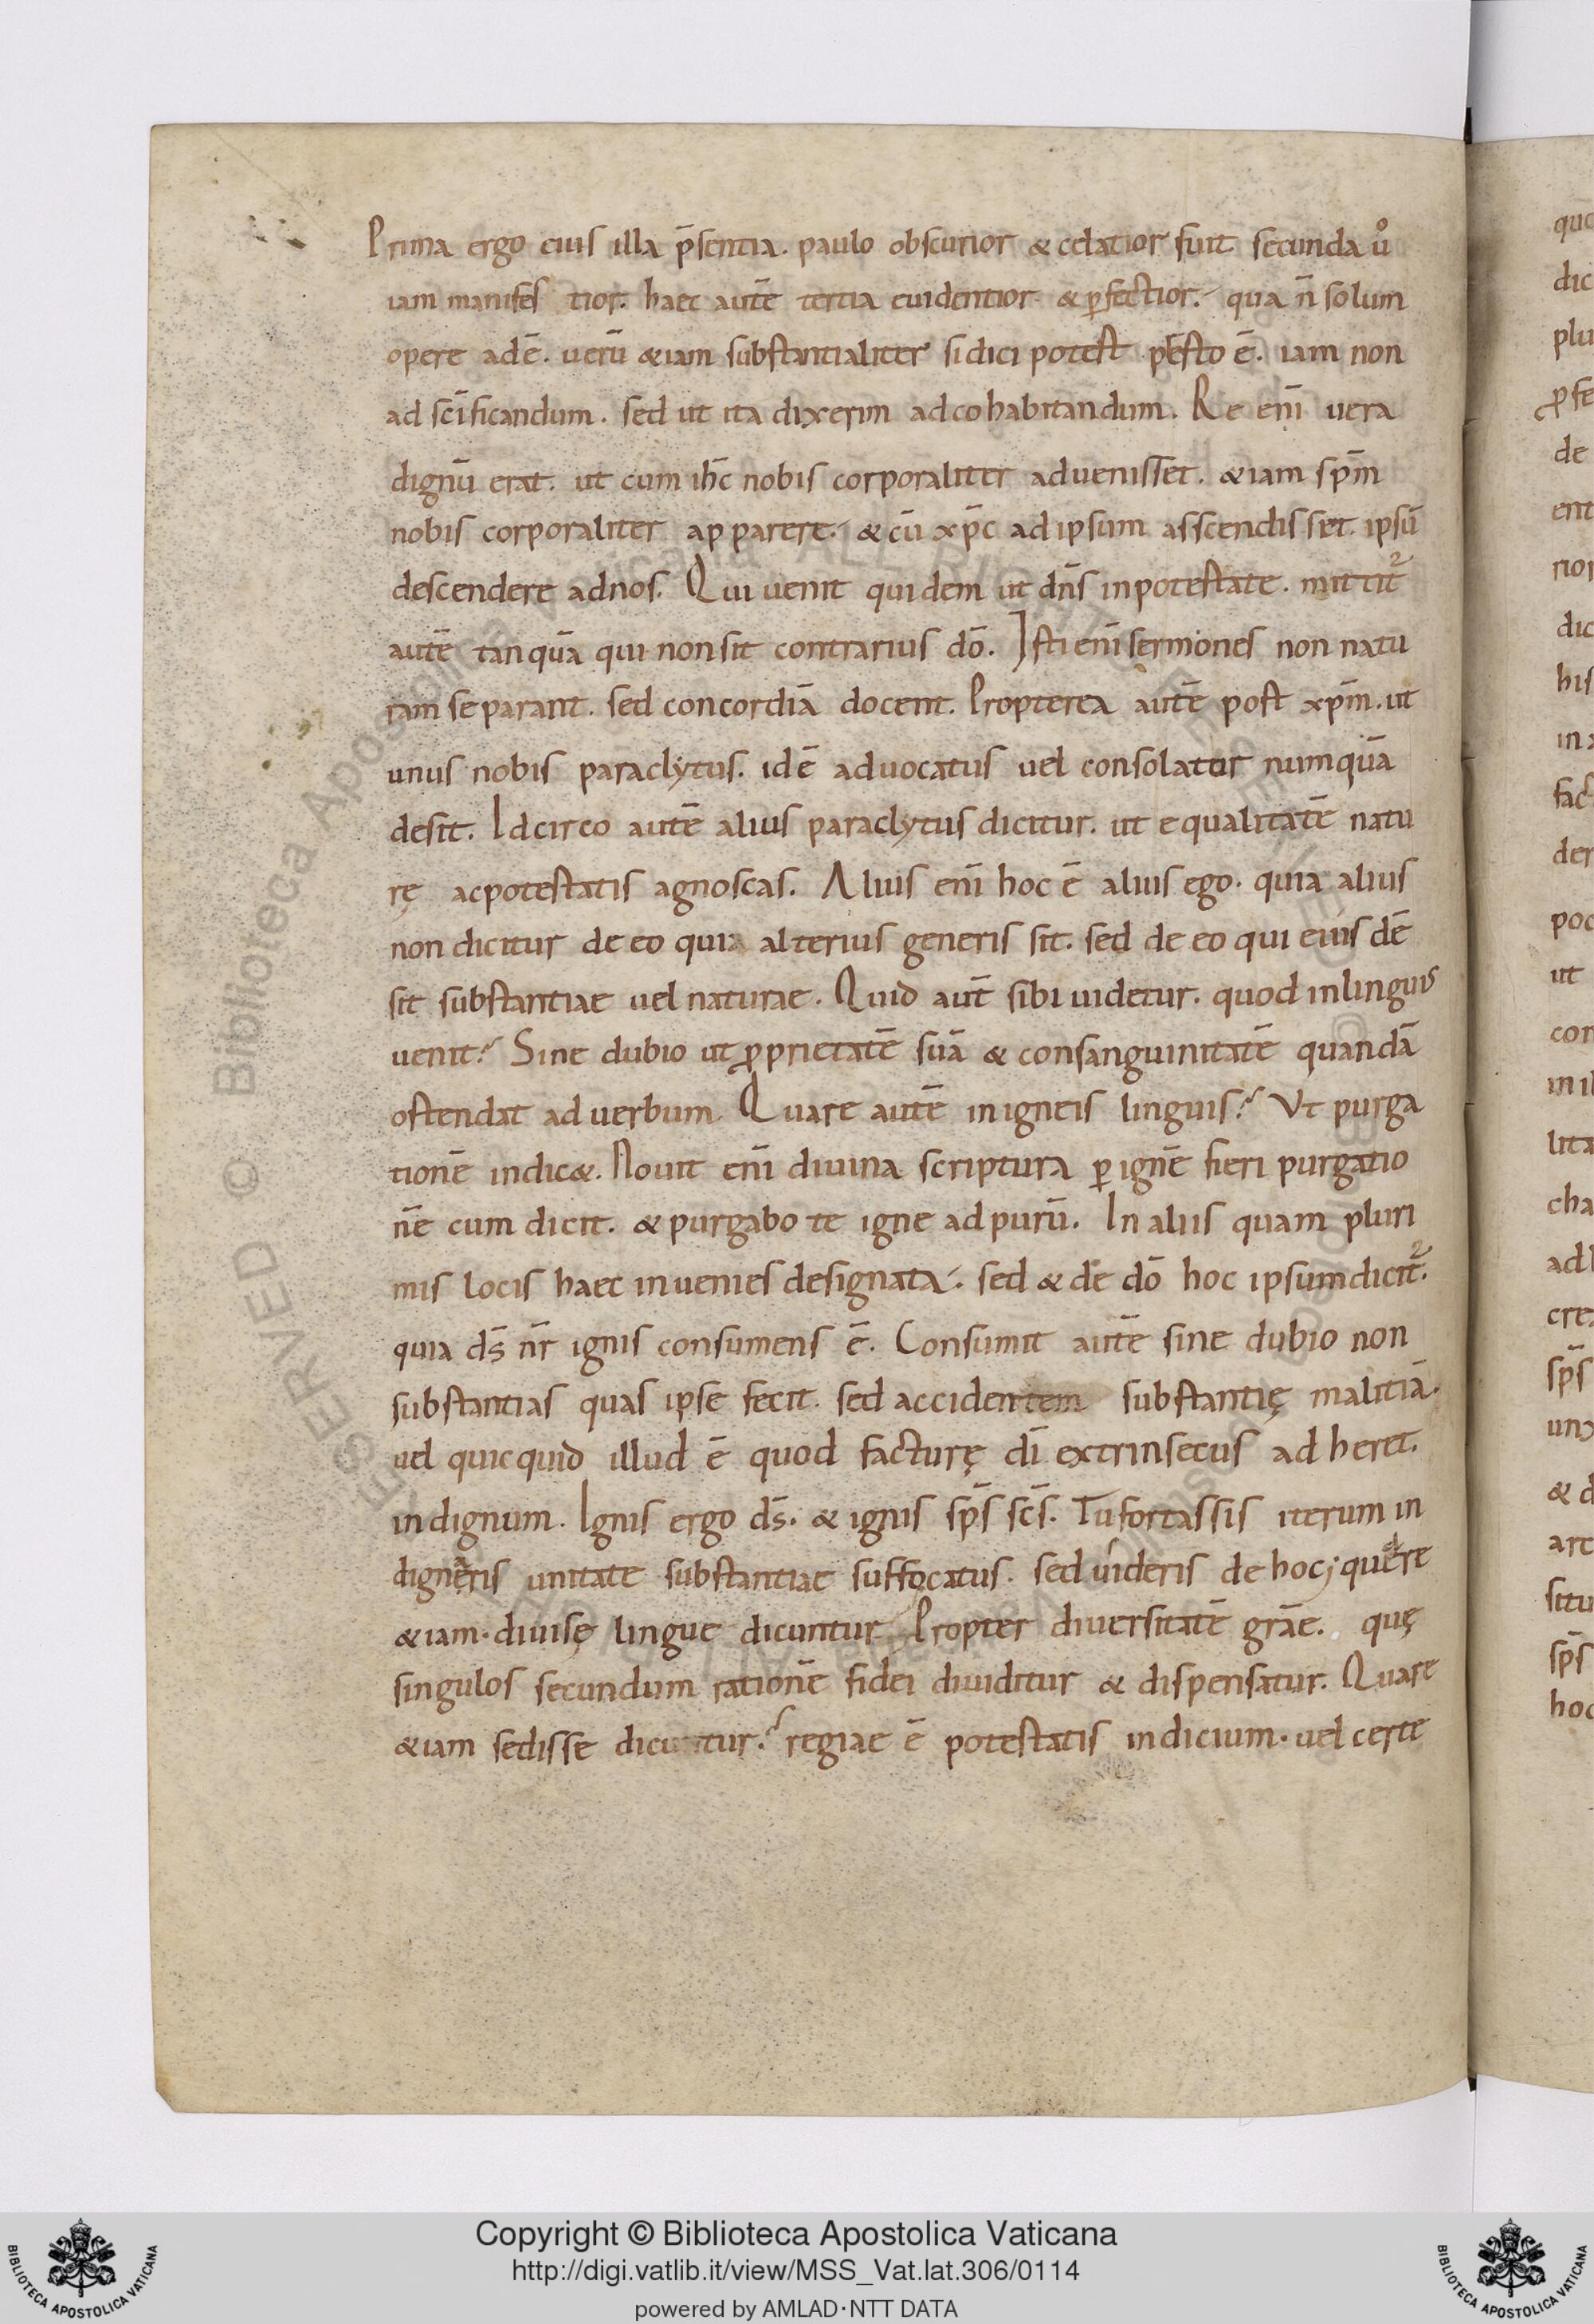 Prima ergo eius illa p̄sentia. paulo obscurior & celatior fuit secunda ů
iam manifes tior. haec autē tertia euidentior & ꝑfectior. qua n̄ solum
opere adē. uerū &iam substantialiter si dici potest p̄esto ē. iam non
ad sc̄ificandum. sed ut ita dixerim ad co habitandum. Re eni̅ uera
dignū erat. ut cum ih̅c nobis corporaliter aduenisset. &iam sp̅m
nobis corporaliter ap parere. & cū xp̅c ad ipsum asscendis set. ipsū
descendere ad nos. Qui uenit qui dem ut dn̅s in potestate. mit tit᷑
autē tan quā qui non sit contrarius dō. Isti eni̅ sermones non natu
ram se parant. sed concordiā docent. Propterea autē post xp̅m. ut
unus nobis paraclytus. id ē aduocatus uel consolator numquā
desit. Idcirco autē alius paraclytus dicitur. ut equalitatē natu
rę ac potestatis agnoscas. Alius eni̅ hoc ē alius ego. quia alius
non dicitur de eo quia alterius generis sit. sed de eo qui eius dē
sit substantiae uel naturae. Quid aut̄ sibi uidetur. quod in linguis
uenit? Sine dubio ut ꝓprietatē suā & consanguinitatē quandā
ostendat ad uerbum. Quare autē in igneis linguis? Vt purga
tionē indic&. Nouit eni̅ diuina scriptura ꝑ ignē fieri purgatio
nē cum dicit. & purgabo te igne ad purū. In aliis quam pluri
mis locis haec inuenies designata. sed & de dō hoc ipsum dicit᷑.
quia ds̅ nr̅ ignis consumens ē. Consumit autē sine dubio non
substantias quas ipse fecit. sed accidentem substantię malitiā.
uel quicquid illud ē quod facturę di̅ extrinsecus ad heret.
indignum. Ignis ergo ds̅. & ignis sp̅s sc̅s. Tu fortassis iterum in
digneris unitate substantiae suffocatus. sed uideris de hoc; quere
&iam. diuisę lingue dicuntur Propter diuersitatē grāe. quę
singulos secundum rationē fidei diuiditur & dispensatur. Quare
&iam sedisse dicuntur? regiae ē potestatis indicium. uel certe
quo
dic
plu
ꝓfe
de
ent
rior
dic
his
in
fac
der
poc
ut
con
in il
lita
cha
ad
cre
sp̅s
una
& d
are
situ
sp̅s
hoc
RESERVED © Biblioteca Apostolica Vaticana
Copyright © Biblioteca Apostolica Vaticana
http://digi.vatlib.it/view/MSS_Vat.lat.306/0114
powered by AMLAD·NTT DATA
BIBLIOTECA APOSTOLICA VATICANA
BIBLIOTECA APOSTOLICA VATICANA